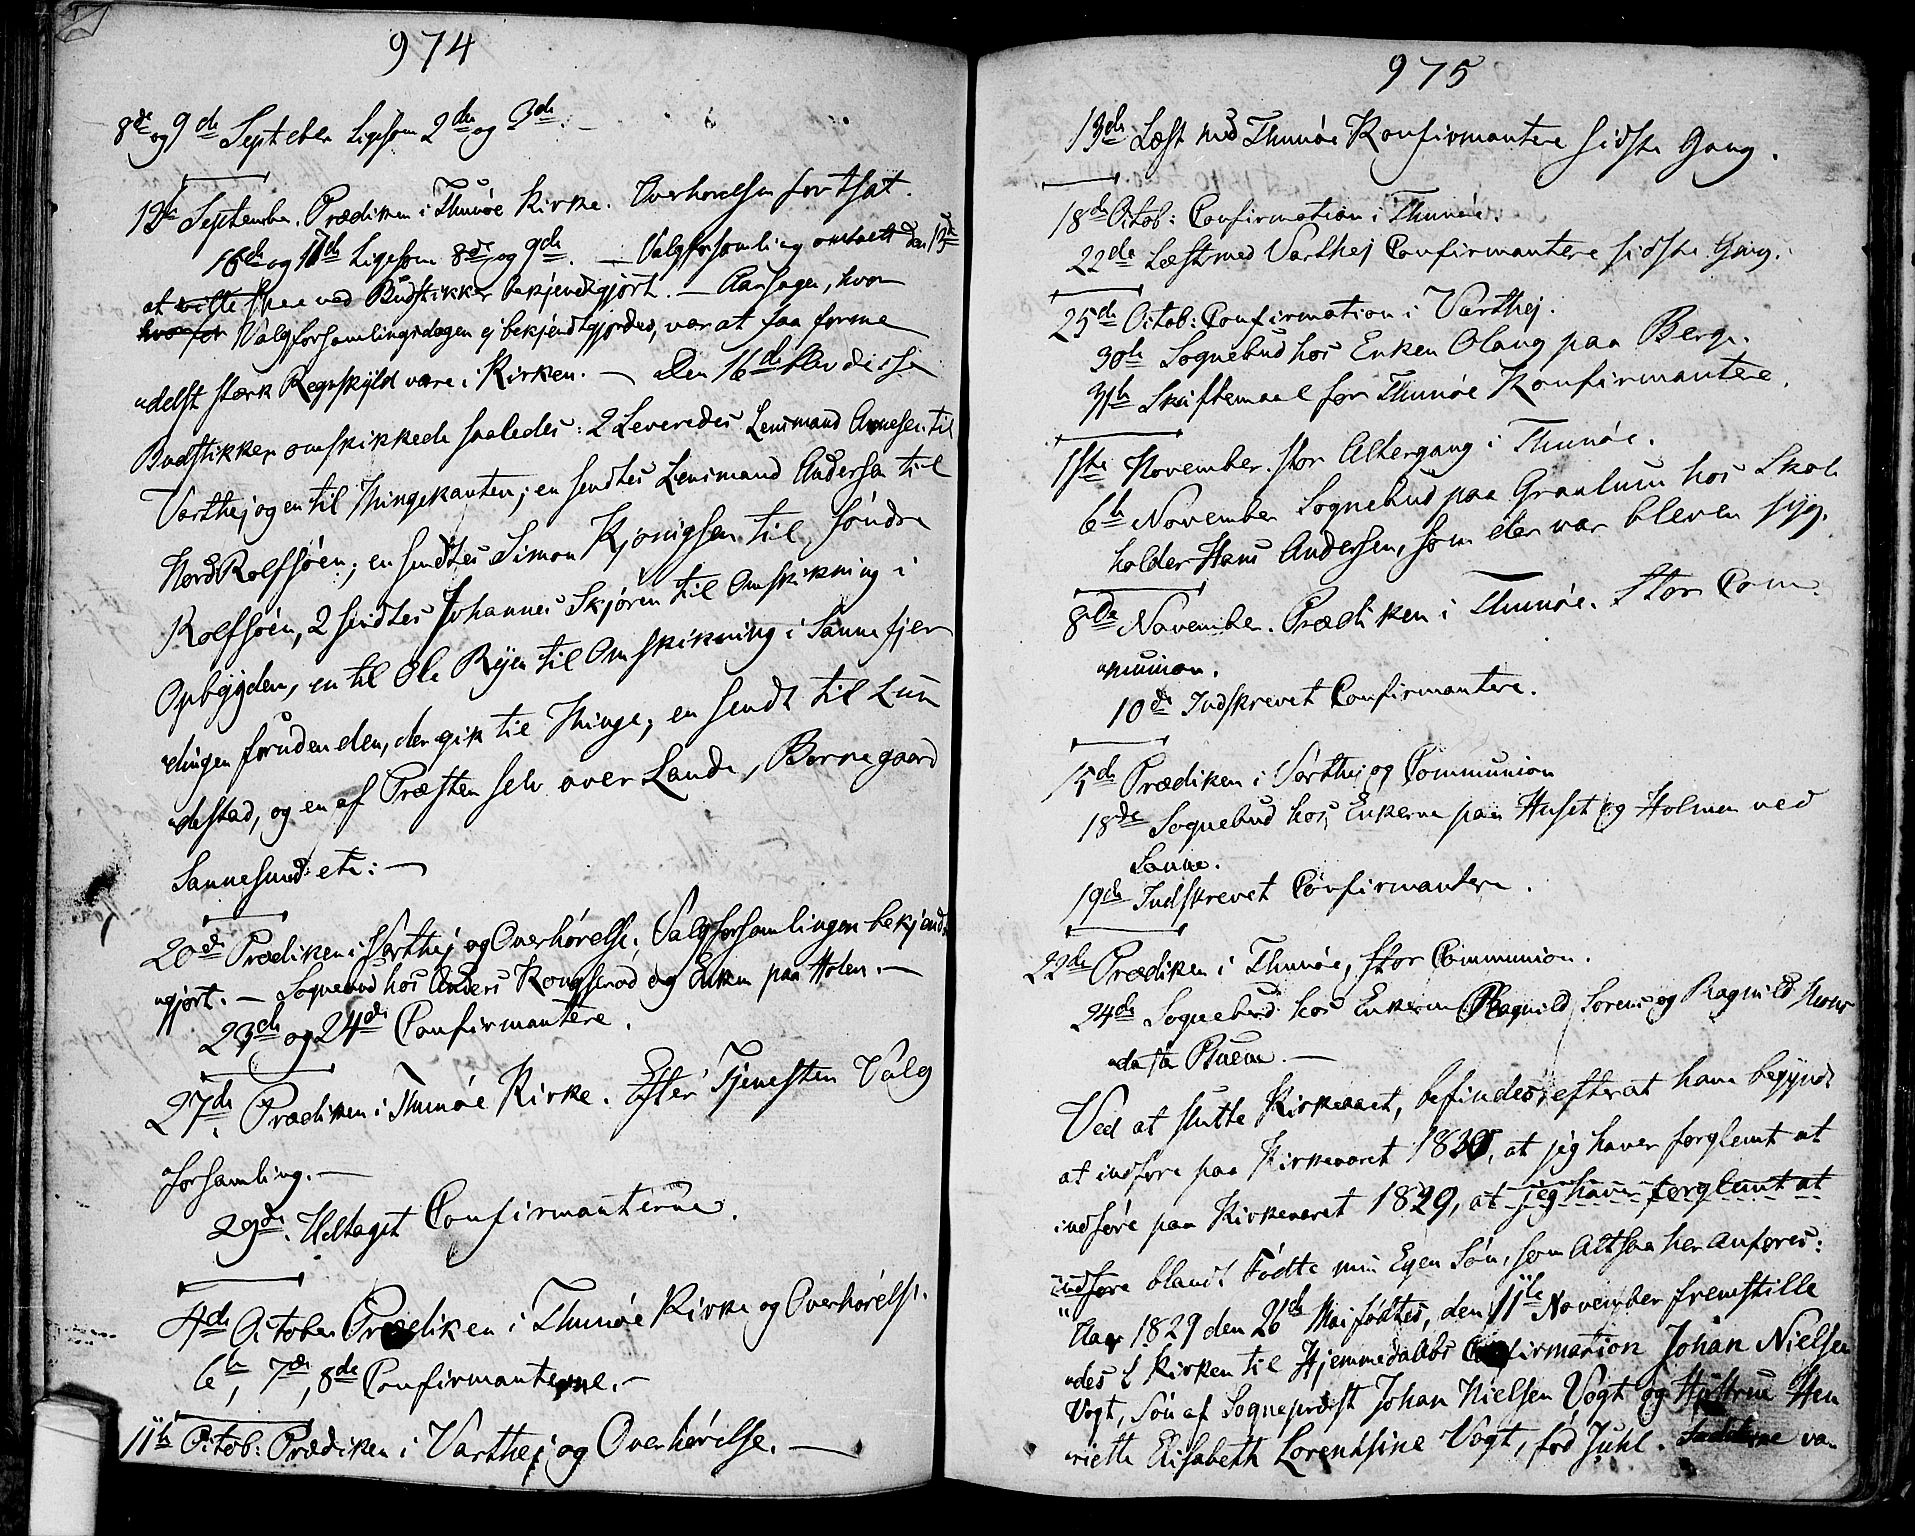 974
8de og 9de Septeber ligesom 2den og 3de. –
13de September. Prædiken i Thunöe Kirke. Overhørelsen fortsat.
16de og 17de ligesom 8de og 9de. – Valgforsamling omtalt den 13de
at skee ved Budstikker bekjendtgjørt. – Aarsagen, hvor
hvorfor Valgforsamlingsdagen ej bekjendtgjordes, var at faa forme
delst stærk Regnskyld vare i Kirken. – Den 16de blev disse
Budstikker omskikkede saaledes: 2 Leveredes Lensmand Arnesen til
Varthej og en til Thingekanten; en sendtes Lensmand Andersen til
Nord Rolfsöen; en sendtes Simon Kjønigsen til söndre
Rolfsöen, 2 sendtes Johannes Skjören til Omskikning i
Opbygden, en til Ole Ryen til Omskikning i Sannefjer
dingen foruden den, der gik til Thinge; en sendt til Lun
destad, og en af Præsten selv over Lande, Borregaard
Sannesund etc: –
20de Prædiken i Varthej og Overhörelse. Valgforsamlingen bekjendt
gjort. – Sognebud hos Anders Kongsrød og Enken paa Holen. –
23de og 24de Confirmantere.
27de Prædiken i Thunöe Kirke. Efter Tjenesten Valg
forsamling. –
29de. Udtaget Confirmanterne.
4de October Prædiken i Thunöe Kirke og Overhörelse.
6te, 7de, 8de Confirmanterne. –
11te Octob: Prædiken i Varthej og Overhörelse. –
975
13de Læst med Thunöe Konfirmantere sidste Gang.
18de Octob: Confirmation i Thunöe.
22de Læst med Varthej Confirmantere sidste Gang.
25de Octob: Confirmation i Varthej.
30te Sognebud hos Enken Olaug paa Berge.
31te Skriftemaal for Thunöe Konfirmantere.
1ste November. stor Altergang i Thunöe.
6te November Sognebud paa Graalum hos Skole
holder Hans Andersen, som der var bleven syg.
8de November. Prædiken i Thunöe. Stor Com
munion.
10de Indskrevet Confirmantere.
15de Prædiken i Varthej og Communion
18de Sognebud hos Enkerne paa Huset og Holmen ved
Sanne.
19de Indskrevet Confirmantere.
22de Prædiken i Thunöe, stor Communion.
24de Sognebud hos Enkerne Ragnild Sørens og Ragnild
Ved at slutte Kirkeaaret, befindes, efterat have begyndt
at indföre paa Kirkeaaret 1830, at jeg haver forglemt at
indföre paa Kirkeaaret 1829, at jeg haver forglemt at
indföre blandt Födte min Egen Sön, som Altsaa her anføres:
"Aar 1829 den 26de Mai födtes, den 11te November fremstille
des i Kirken til Hjemmedaabs Confirmation Johan Nielsen
Vogt, Sön af Sognepræst Johan Nielsen Vogt og Hustrue Hen
riette Elisabeth Lorentsine Vogt, fød Juhl. Fadderne va